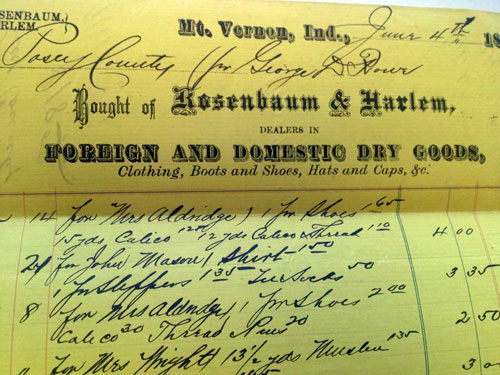 ROSENBAUM,
HARLEM.
Mt. Vernon, Ind., June 4th 18
Posey County (for George D Rowe
Bought of Rosenbaum & Harlem,
DEALERS IN
FOREIGN AND DOMESTIC DRY GOODS,
Clothing, Boots and Shoes, Hats and Caps, &c.
14 for Mrs Aldridge) 1 pr Shoes 1 65
15 yds Calico 12 yds Calico & Thread 1 10 4 00
24 for John Mason) Shirt 1 50
1 pr Slippers 1 35 Socks 50 3 35
8 for Mrs Aldridge) 1 pr Shoes 2 00
Calico 30 Thread Pins 20 2 50
for Mrs Wright) 13 1/2 yds Muslin 1 35